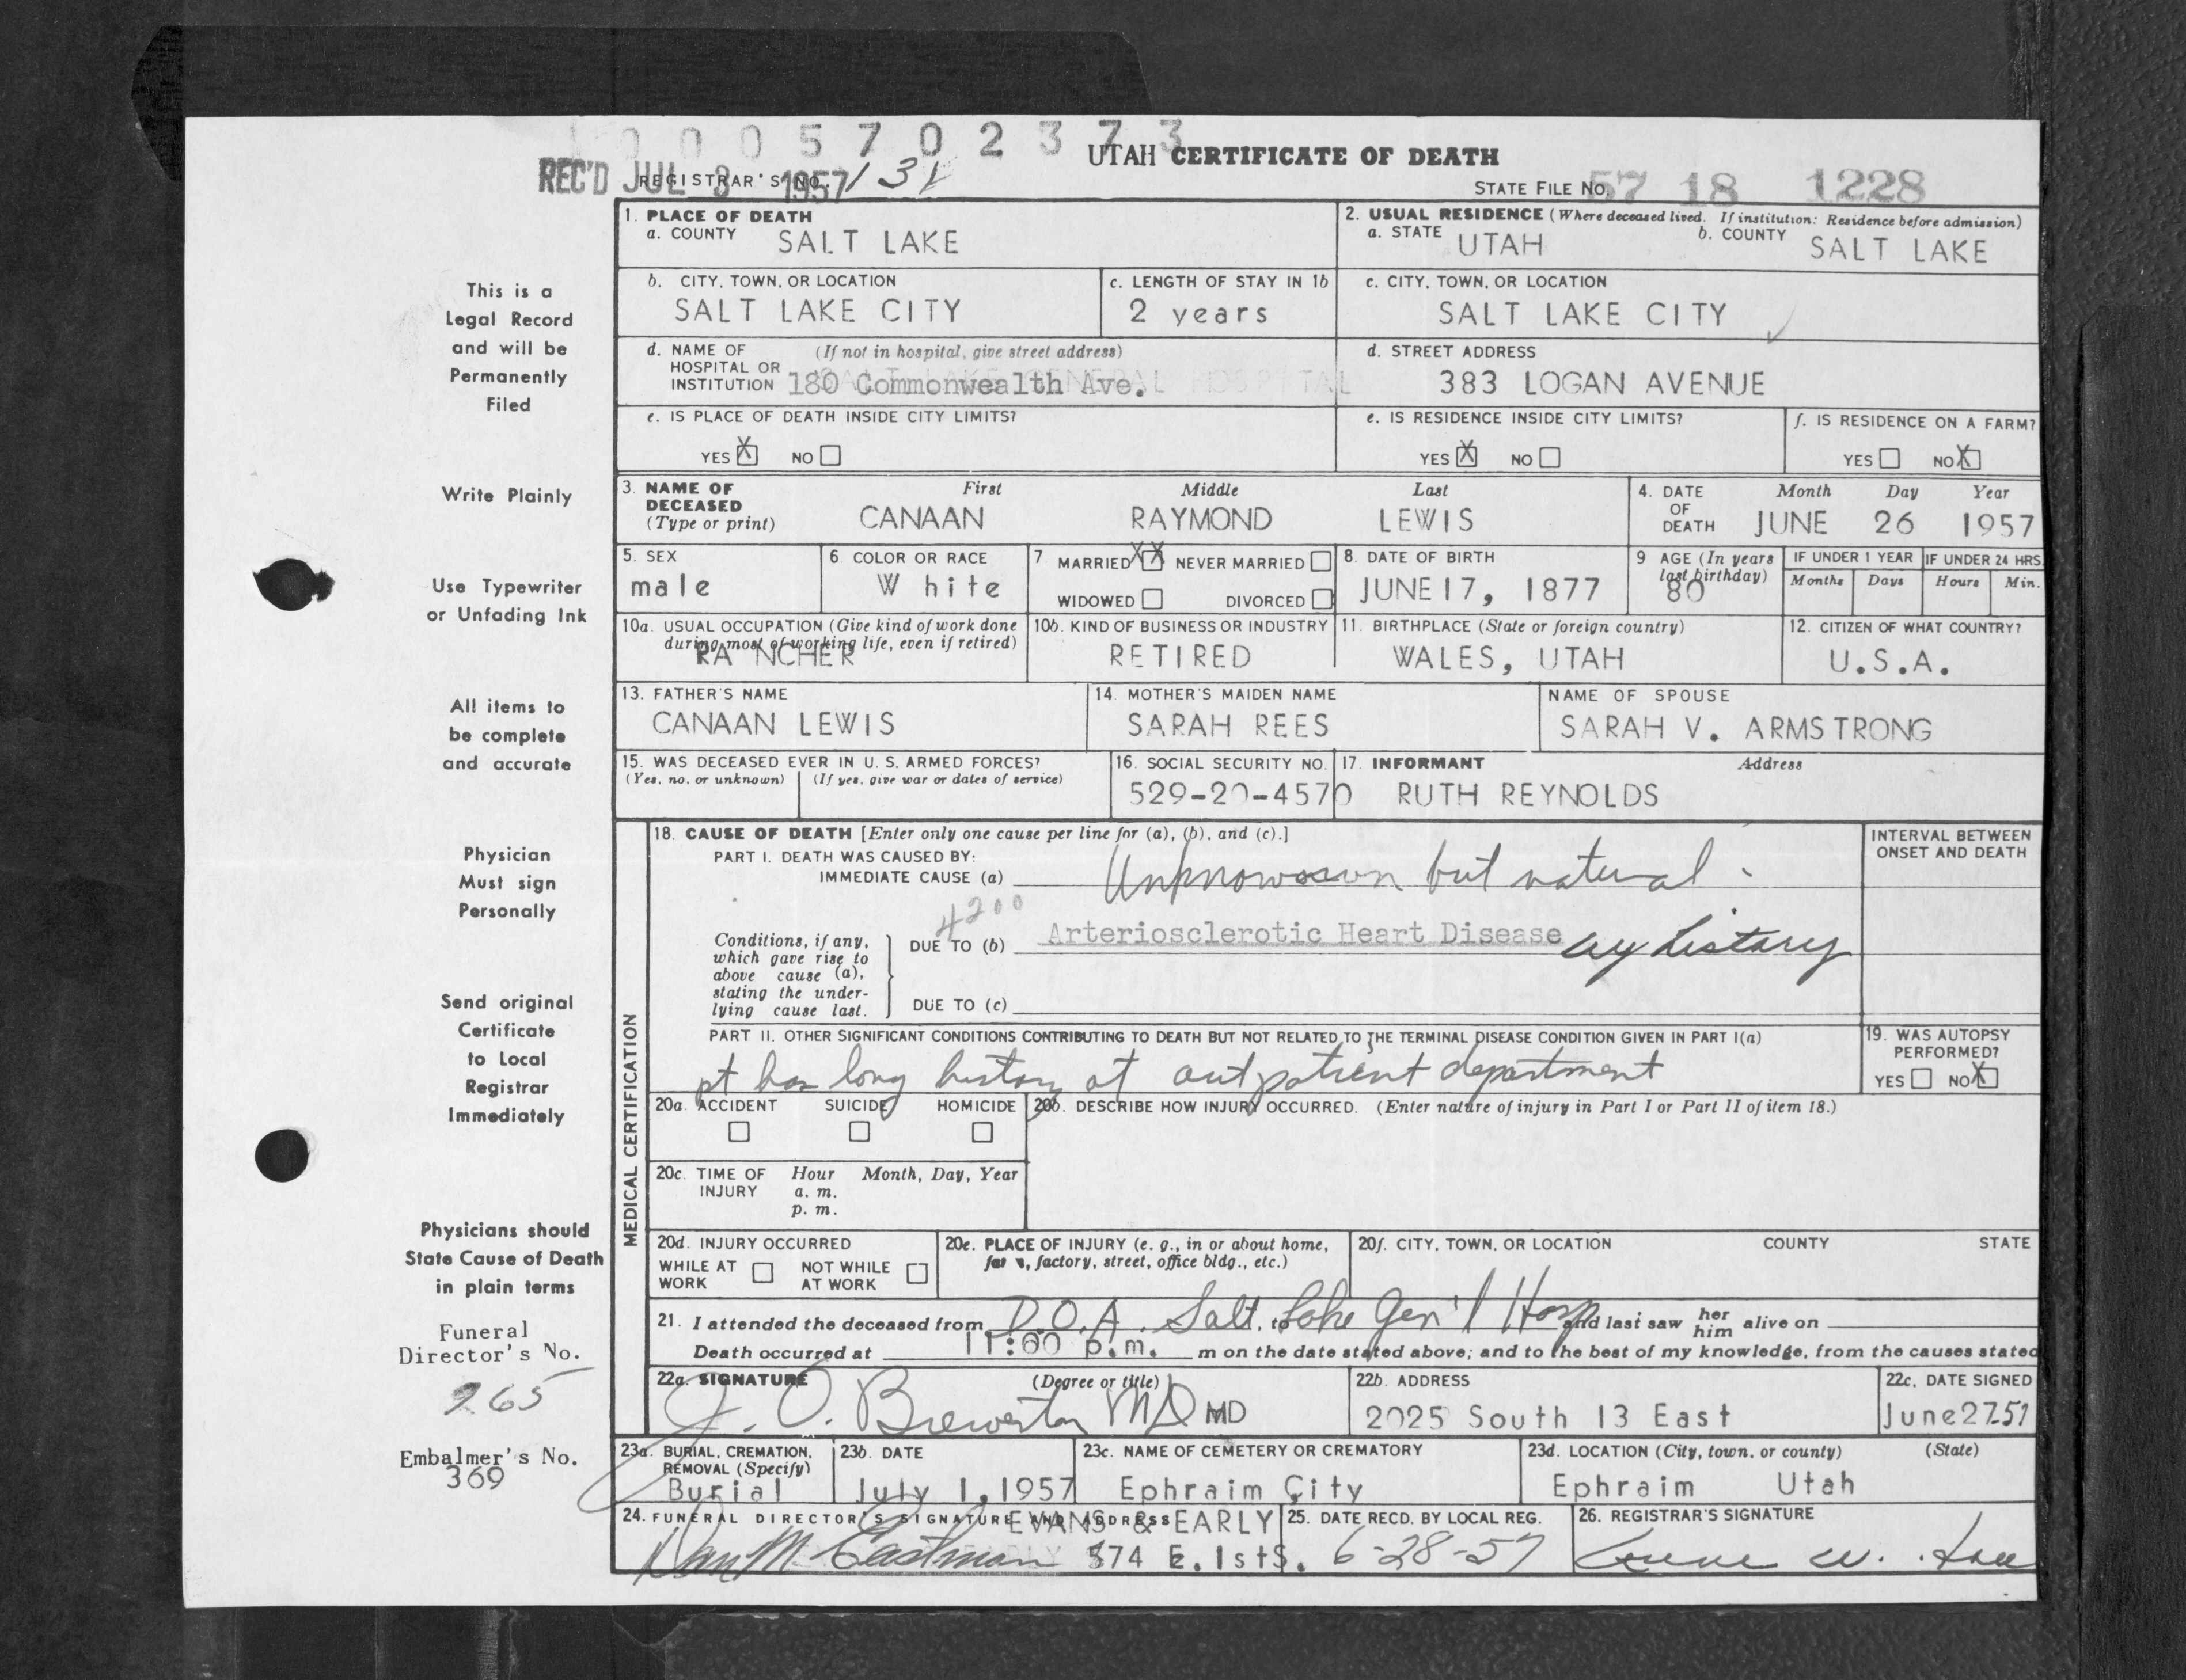 0 0 0 5 7 0 2 3 7 3
UTAH CERTIFICATE OF DEATH
REC'D JUL 3 1957
REGISTRAR'S NO.
STATE FILE NO. 57 18 1228
This is a
Legal Record
and will be
Permanently
Filed
Write Plainly
Use Typewriter
or Unfading Ink
All items to
be complete
and accurate
Physician
Must sign
Personally
Send original
Certificate
to Local
Registrar
Immediately
Physicians should
State Cause of Death
in plain terms
Funeral
Director's No.
265
Embalmer's No.
369
1. PLACE OF DEATH
a. COUNTY SALT LAKE
2. USUAL RESIDENCE (Where deceased lived. If institution: Residence before admission)
a. STATE UTAH b. COUNTY SALT LAKE
b. CITY, TOWN, OR LOCATION
SALT LAKE CITY
c. LENGTH OF STAY IN 1b
2 years
c. CITY, TOWN, OR LOCATION
SALT LAKE CITY
d. NAME OF (If not in hospital, give street address)
HOSPITAL OR
INSTITUTION 180 Commonwealth Ave.
d. STREET ADDRESS
383 LOGAN AVENUE
e. IS PLACE OF DEATH INSIDE CITY LIMITS?
YES X NO
e. IS RESIDENCE INSIDE CITY LIMITS?
YES X NO
f. IS RESIDENCE ON A FARM?
YES NO X
3. NAME OF
DECEASED
(Type or print)
First Middle Last
CANAAN RAYMOND LEWIS
4. DATE
OF
DEATH
Month Day Year
JUNE 26 1957
5. SEX
male
6. COLOR OR RACE
W hite
7 MARRIED XX NEVER MARRIED
WIDOWED DIVORCED
8. DATE OF BIRTH
JUNE17, 1877
9 AGE (In years
last birthday)
80
IF UNDER 1 YEAR IF UNDER 24 HRS.
Months Days Hours Min.
10a. USUAL OCCUPATION (Give kind of work done
during most of working life, even if retired)
RA NCHER
10b. KIND OF BUSINESS OR INDUSTRY
RETIRED
11. BIRTHPLACE (State or foreign country)
WALES, UTAH
12. CITIZEN OF WHAT COUNTRY?
U.S.A.
13. FATHER'S NAME
CANAAN LEWIS
14. MOTHER'S MAIDEN NAME
SARAH REES
NAME OF SPOUSE
SARAH V. ARMSTRONG
15. WAS DECEASED EVER IN U. S. ARMED FORCES?
(Yes, no. or unknown) (If yes, give war or dates of service)
16. SOCIAL SECURITY NO.
529-20-4570
17. INFORMANT Address
RUTH REYNOLDS
MEDICAL CERTIFICATION
18. CAUSE OF DEATH [Enter only one cause per line for (a), (b), and (c).]
PART I. DEATH WAS CAUSED BY:
IMMEDIATE CAUSE (a) Unknowown but natural.
INTERVAL BETWEEN
ONSET AND DEATH
4200
Conditions, if any,
which gave rise to
above cause (a),
stating the under-
lying cause last.
DUE TO (b) Arteriosclerotic Heart Disease by history
DUE TO (c)
PART II. OTHER SIGNIFICANT CONDITIONS CONTRIBUTING TO DEATH BUT NOT RELATED TO THE TERMINAL DISEASE CONDITION GIVEN IN PART I(a)
pt has long history at out patient department
19. WAS AUTOPSY
PERFORMED?
YES NO X
20a. ACCIDENT SUICIDE HOMICIDE
20b. DESCRIBE HOW INJURY OCCURRED. (Enter nature of injury in Part I or Part II of item 18.)
20c. TIME OF Hour Month, Day, Year
INJURY a. m.
p. m.
20d. INJURY OCCURRED
WHILE AT WORK NOT WHILE AT WORK
20e. PLACE OF INJURY (e. g., in or about home,
farm, factory, street, office bldg., etc.)
20f. CITY, TOWN, OR LOCATION COUNTY STATE
21. I attended the deceased from D.O.A. Salt, to Lake Gen'l Hosp and last saw her him alive on
Death occurred at 11:00 p.m. m on the date stated above; and to the best of my knowledge, from the causes stated
22a. SIGNATURE (Degree or title)
J. O. Brewerton MD MD
22b. ADDRESS
2025 South 13 East
22c. DATE SIGNED
June27-57
23a. BURIAL, CREMATION,
REMOVAL (Specify)
Burial
23b. DATE
July 1,1957
23c. NAME OF CEMETERY OR CREMATORY
Ephraim City
23d. LOCATION (City, town, or county) (State)
Ephraim Utah
24. FUNERAL DIRECTOR'S SIGNATURE AND ADDRESS EVANS & EARLY
Eastman 574 E. 1stS.
25. DATE RECD. BY LOCAL REG.
6-28-57
26. REGISTRAR'S SIGNATURE